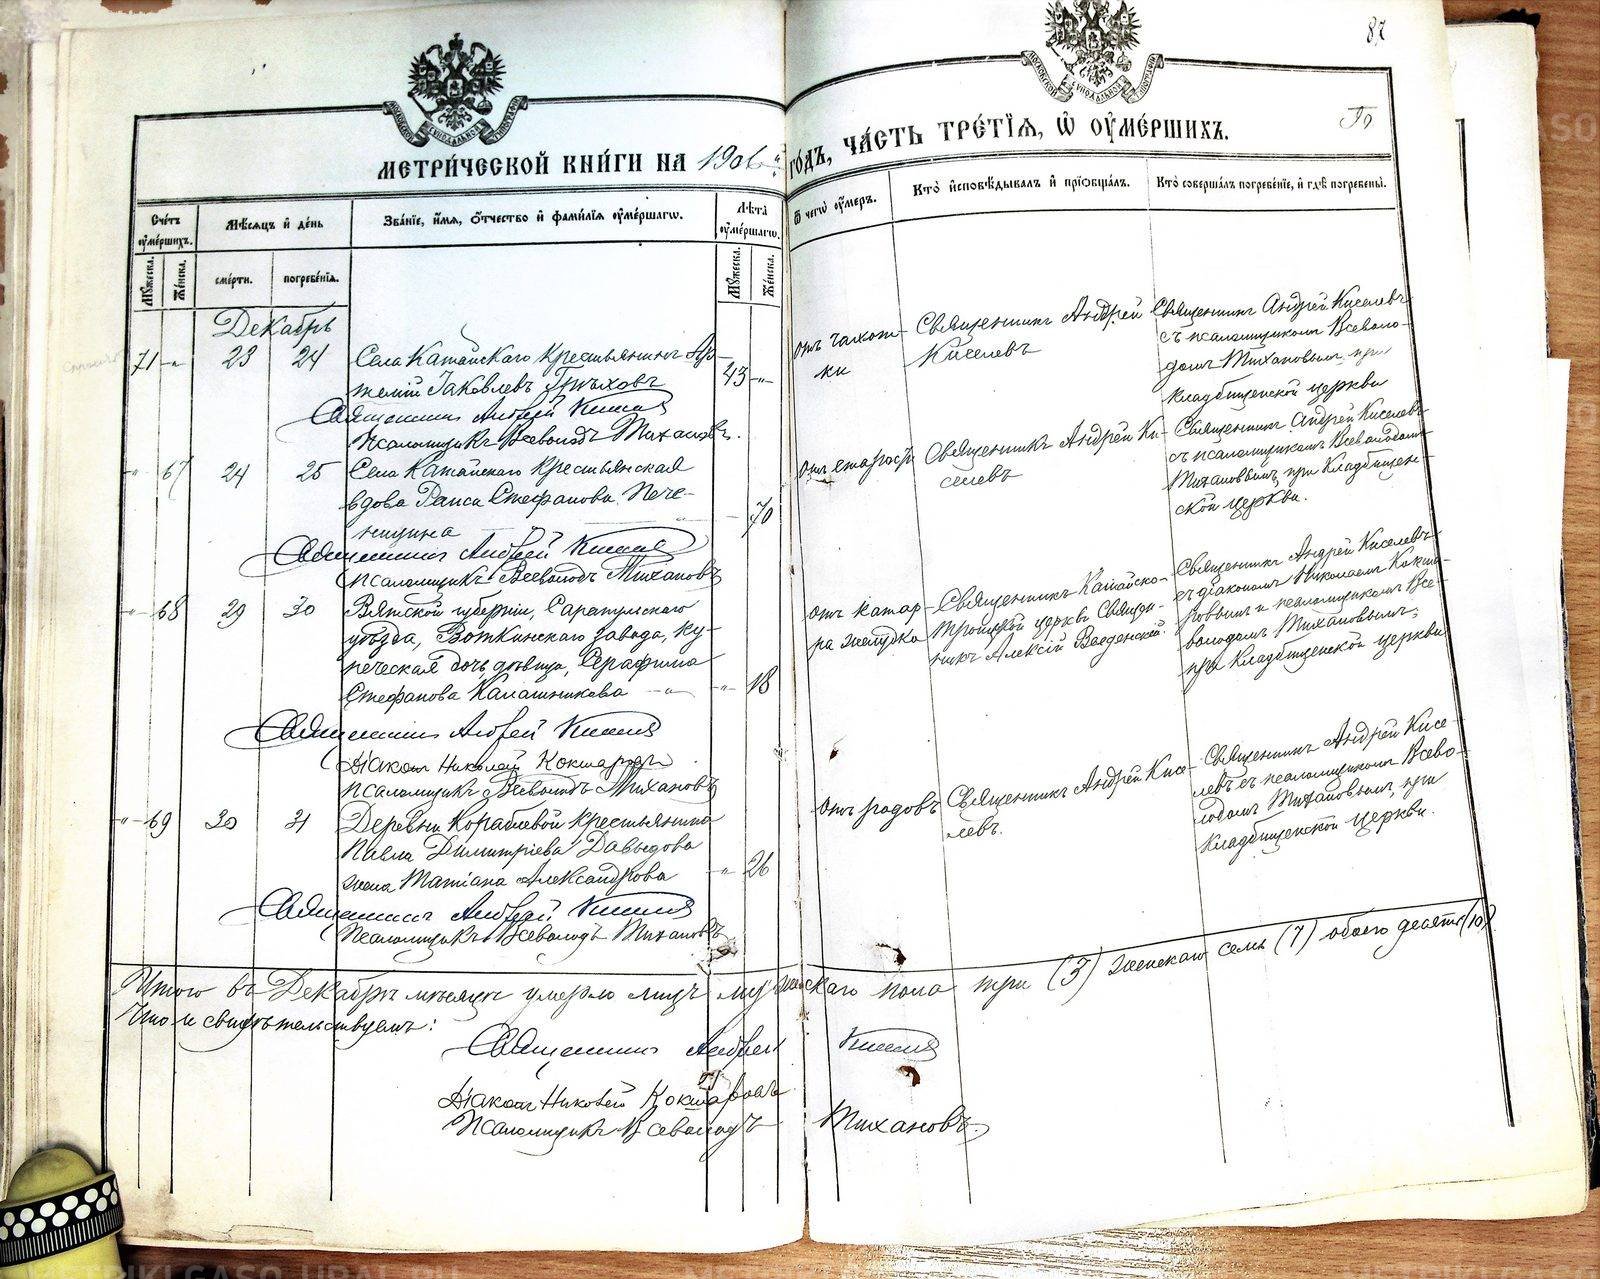 87
МОСКОВСКОЙ СѴНОДАЛЬНОЙ ТИПОГРАФІИ
МОСКОВСКОЙ СѴНОДАЛЬНОЙ ТИПОГРАФІИ
МЕТРИ́ЧЕСКОЙ КНИ́ГИ НА 1906 ГО́ДЪ, ЧА́СТЬ ТРЕ́ТІѦ, Ѡ҆ ОУ҆МЕ́РШИХЪ.
Сче́тъ оу҆ме́ршихъ.
Мѣ́сѧцъ и҆ де́нь
Зва́нїе, и҆́мѧ, ѻ҆́тчество и҆ фами́лїѧ оу҆ме́ршагѡ.
Лѣ́та оу҆ме́ршагѡ.
Ѿ чегѡ̀ оу҆́меръ.
Кто̀ и҆сповѣ́дывалъ и҆ прїѡбща́лъ.
Кто̀ соверша́лъ погребе́нїе, и҆ гдѣ̀ погребены̀.
Мꙋ́жеска.
Же́нска.
сме́рти.
погребе́нїѧ.
Мꙋ́жеска.
Же́нска.
Декабрь
71 - " 23 24
Села Катайскаго крестьянинъ Ар-
темій Іаковлевъ Грѣховъ
43 "
Священникъ Андрей Киселевъ
Псаломщикъ Всеволодъ Тихановъ.
отъ чахот-
ки
Священникъ Андрей
Киселевъ
Священникъ Андрей Киселевъ
съ псаломщикомъ Всеволо-
домъ Тихановымъ при
кладбищенской церкви
" 67 24 25
Села Катайскаго крестьянская
вдова Раиса Стефанова Пече-
нкина
" 70
Священникъ Андрей Киселевъ
Псаломщикъ Всеволодъ Тихановъ
отъ старости
Священникъ Андрей Ки-
селевъ
Священникъ Андрей Киселевъ
съ псаломщикомъ Всеволодомъ
Тихановымъ, при Кладбищен-
ской церкви.
" 68 29 30
Вятской губерніи, Сарапульскаго
уѣзда, Воткинскаго завода, ку-
печеская дочь, дѣвица, Серафима
Стефанова Калашникова
" 18
Священникъ Андрей Киселевъ
Діаконъ Николай Кокшаровъ
Псаломщикъ Всеволодъ Тихановъ
отъ катар-
ра желудка
Священникъ Катайско-
Троицкой церкви Священ-
никъ Алексій Введенскій.
Священникъ Андрей Киселевъ
съ діакономъ Николаемъ Кокша-
ровымъ и псаломщикомъ Все-
володомъ Тихановымъ,
при Кладбищенской церкви
" 69 30 31
Деревни Кораблевой крестьянина
Павла Димитріева Давыдова
жена Татіана Александрова
" 26
Священникъ Андрей Киселевъ
Псаломщикъ Всеволодъ Тихановъ
отъ родовъ
Священникъ Андрей Кисе-
левъ.
Священникъ Андрей Кисе-
левъ съ псаломщикомъ Всево-
лодомъ Тихановымъ, при
Кладбищенской церкви.
Итого въ Декабрѣ мѣсяцѣ умерло лицъ мужескаго пола три (3) женскаго семь (7) обоего десять (10)
Что и свидѣтельствуемъ:
Священникъ Андрей Киселевъ
Діаконъ Николай Кокшаровъ
Псаломщикъ Всеволодъ Тихановъ.
METRIKI.GASO-URAL.RU
METRIKI.GASO-URAL.RU